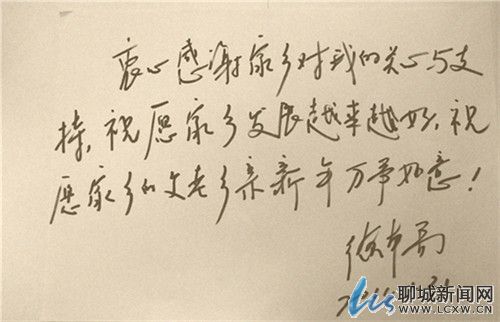 衷心感谢家乡对我的关心与支
持，祝愿家乡发展越来越好，祝
愿家乡的父老乡亲新年万事如意！
聊城新闻网
WWW.LCXW.CN